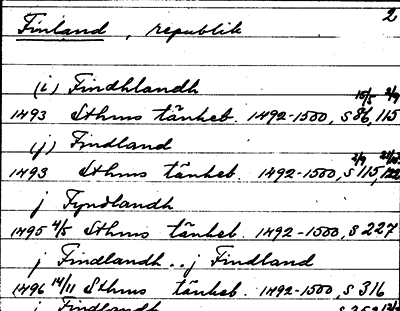 2
Finland, republik
(i) Findhlandh
15/5 2/9
1493 Sthms tänkeb. 1492-1500, s 86, 115
(j) Findland
2/9
1493 Sthms tänkeb. 1492-1500, s 115, 122
j Fyndlandh
1495 4/5 Sthms tänkeb. 1492-1500, s 227
j Findlandh .. j Findland
1496 14/11 Sthms tänkeb. 1492-1500, s 316
j Findlandh